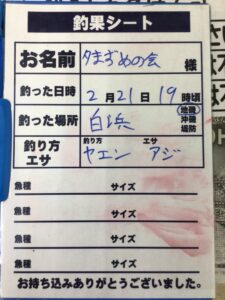 釣果シート
お名前 夕まずめの会 様
釣った日時 2月21日19時頃
釣った場所 白浜 地磯 沖磯 堤防
釣り方 エサ 釣り方 ヤエン エサ アジ
魚種 サイズ
魚種 サイズ
魚種 サイズ
魚種 サイズ
お持ち込みありがとうございました。